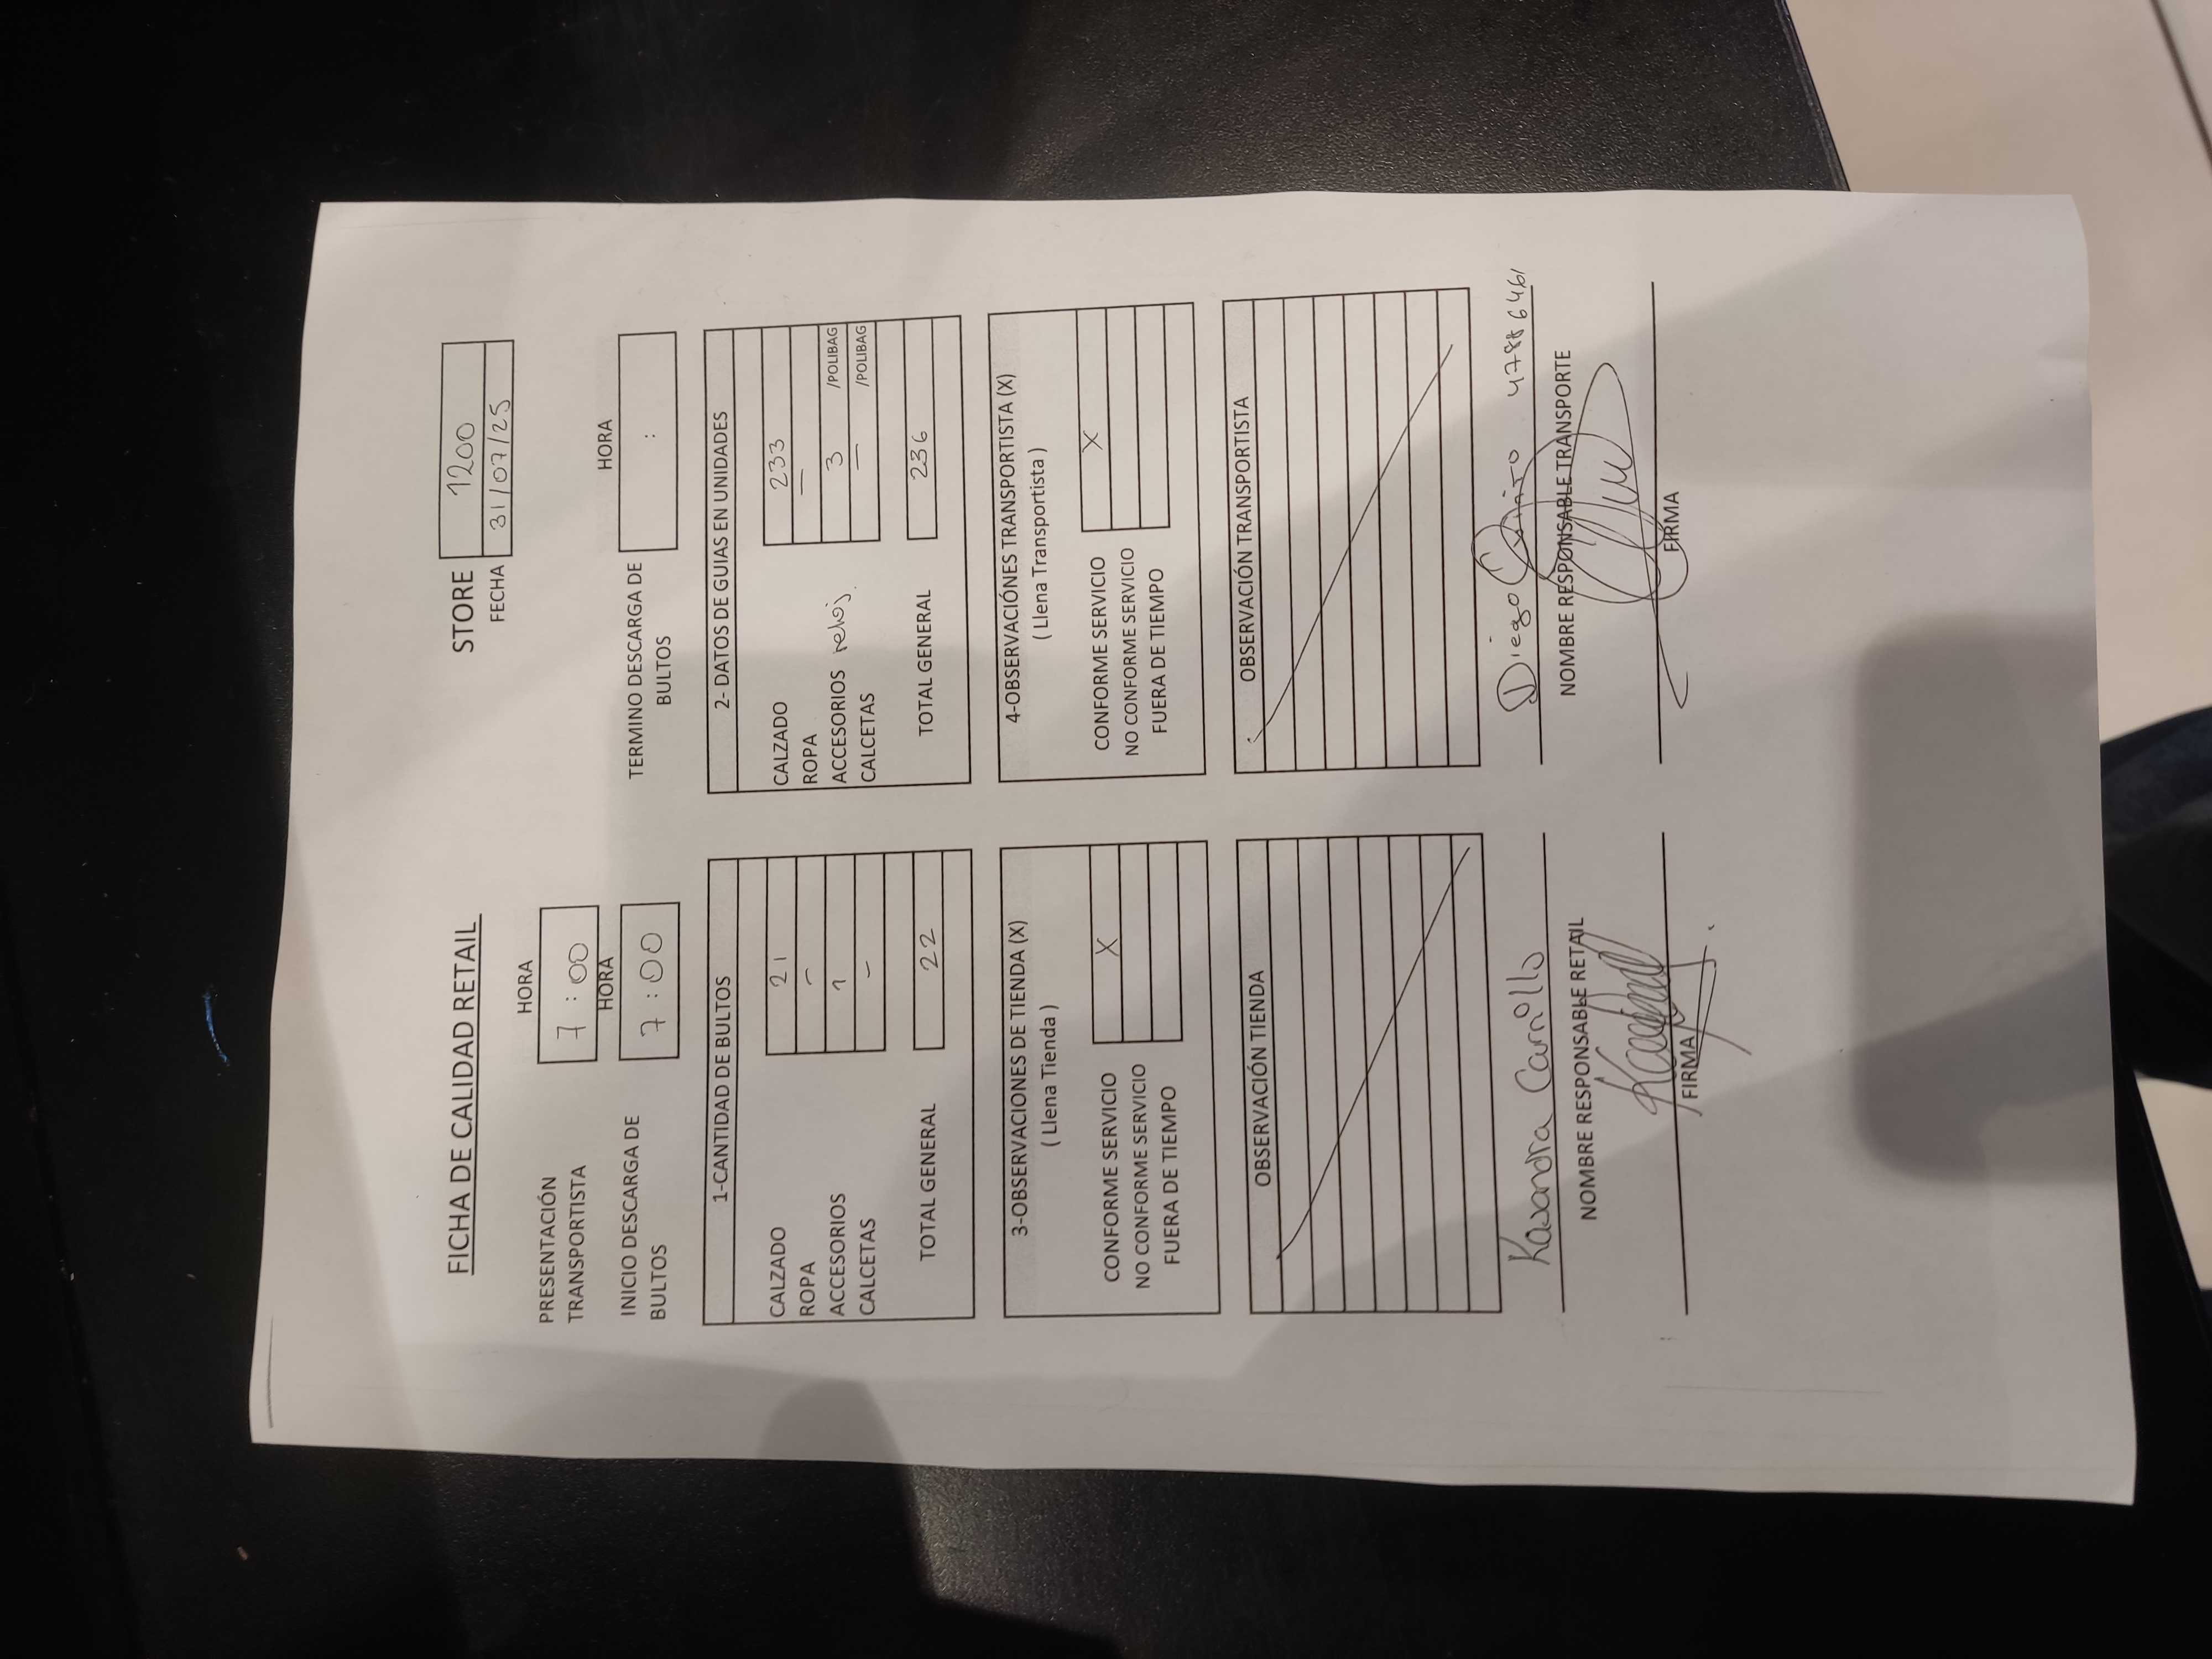 FICHA DE CALIDAD RETAIL
STORE 1200
FECHA 31/07/25
HORA
PRESENTACIÓN TRANSPORTISTA 7:00
HORA
INICIO DESCARGA DE BULTOS 7:00
HORA
TERMINO DESCARGA DE BULTOS :
1-CANTIDAD DE BULTOS
CALZADO 21
ROPA -
ACCESORIOS 1
CALCETAS -
TOTAL GENERAL 22
2- DATOS DE GUIAS EN UNIDADES
CALZADO 233
ROPA —
ACCESORIOS reloj. 3 /POLIBAG
CALCETAS — /POLIBAG
TOTAL GENERAL 236
3-OBSERVACIONES DE TIENDA (X)
( Llena Tienda )
CONFORME SERVICIO X
NO CONFORME SERVICIO
FUERA DE TIEMPO
4-OBSERVACIÓNES TRANSPORTISTA (X)
( Llena Transportista )
CONFORME SERVICIO X
NO CONFORME SERVICIO
FUERA DE TIEMPO
OBSERVACIÓN TIENDA
OBSERVACIÓN TRANSPORTISTA
Kasandra Carrillo
NOMBRE RESPONSABLE RETAIL
FIRMA
Diego
NOMBRE RESPONSABLE TRANSPORTE
FIRMA